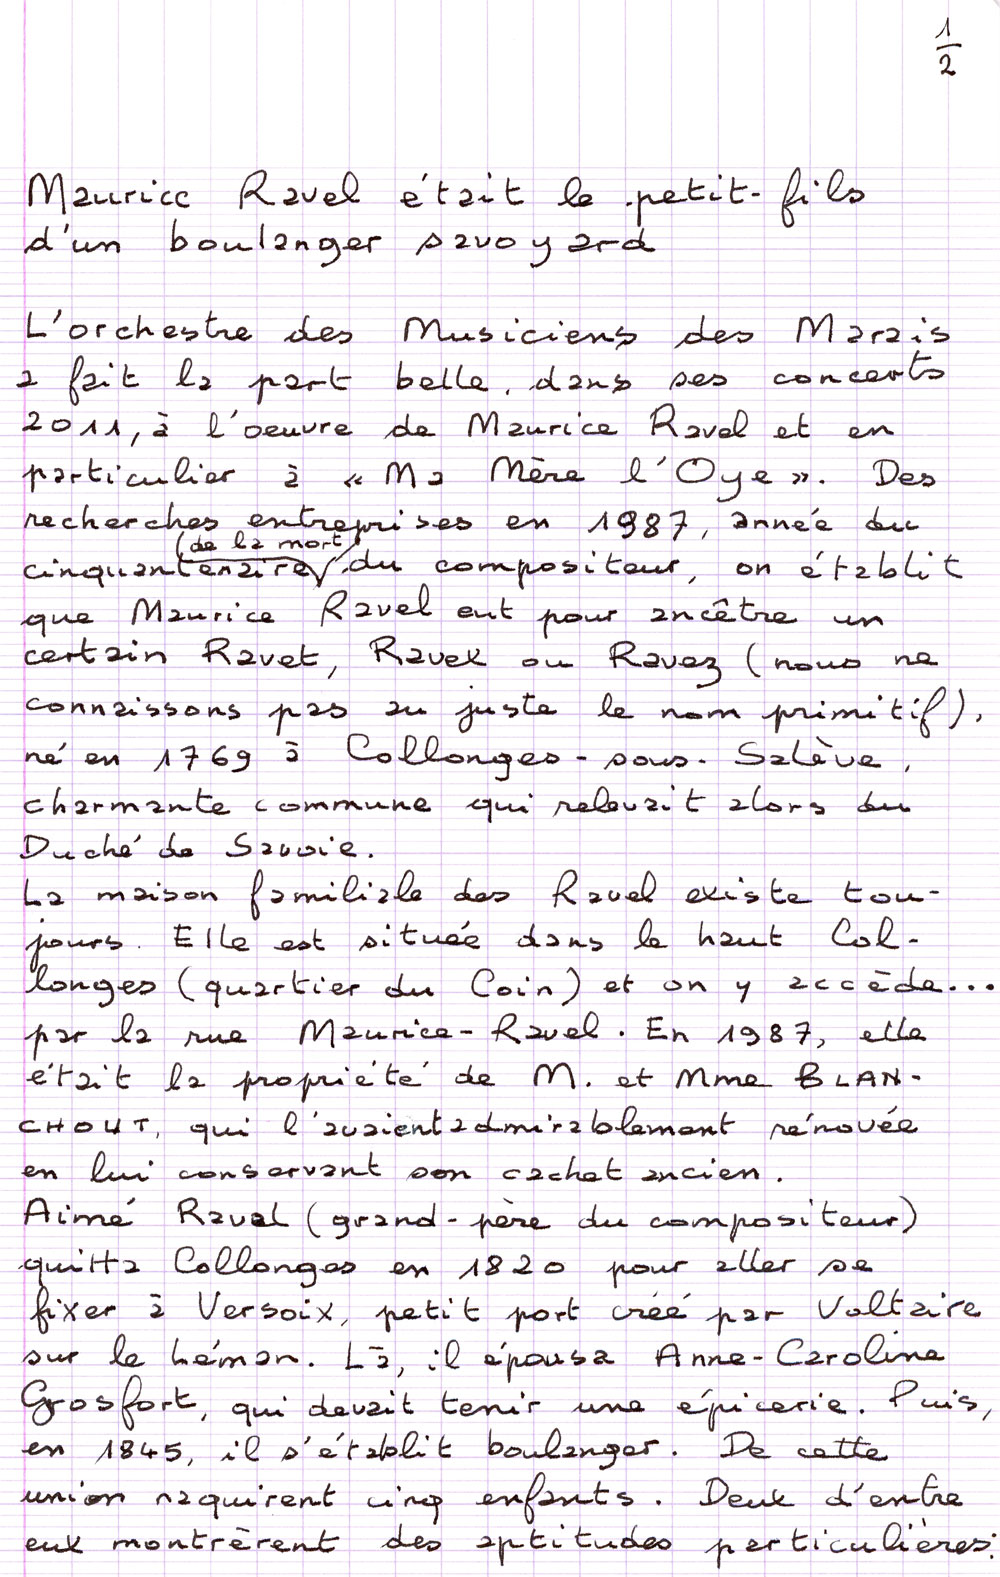 1/2
Maurice Ravel était le petit-fils
d'un boulanger savoyard
L'orchestre des Musiciens des Marais
a fait la part belle, dans ses concerts
2011, à l'oeuvre de Maurice Ravel et en
particulier à « Ma Mère l'Oye ». Des
recherches entreprises en 1987, année du
(de la mort)
cinquantenaire du compositeur, on établit
que Maurice Ravel eut pour ancêtre un
certain Ravet, Ravex ou Ravez (nous ne
connaissons pas au juste le nom primitif),
né en 1769 à Collonges-sous-Salève,
charmante commune qui relevait alors du
Duché de Savoie.
La maison familiale des Ravel existe tou-
jours. Elle est située dans le haut Col-
longes (quartier du Coin) et on y accède...
par la rue Maurice-Ravel. En 1987, elle
était la propriété de M. et Mme BLAN-
CHOUT, qui l'avaient admirablement rénovée
en lui conservant son cachet ancien.
Aimé Ravel (grand-père du compositeur)
quitta Collonges en 1820 pour aller se
fixer à Versoix, petit port créé par Voltaire
sur le Léman. Là, il épousa Anne-Caroline
Grosfort, qui devait tenir une épicerie. Puis,
en 1845, il s'établit boulanger. De cette
union naquirent cinq enfants. Deux d'entre
eux montrèrent des aptitudes particulières: